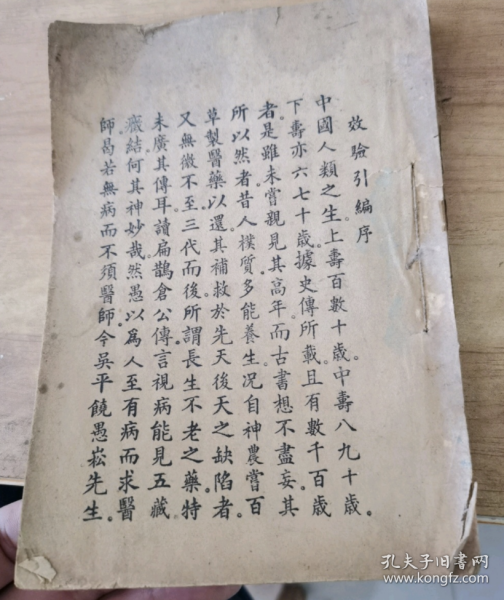 效驗引編序
中國人類之生上壽百數十歲。中壽八九十歲。
下壽亦六七十歲。據史傳所載且有數千百歲
者。是雖未嘗親見其高年。而古書想不盡妄。其
所以然者。昔人樸質多能養生。況自神農嘗百
草製醫藥。以還其補救於先天後天之缺陷者。
又無微不至。三代而後所謂長生不老之藥。特
未廣其傳耳。讀扁鵲倉公傳。言視病能見五藏
癥結。何其神妙哉。然愚以為人至有病而求醫
師。曷若無病而不須醫師。今吳平饒愚崧先生。
孔夫子旧书网
www.kongfz.com